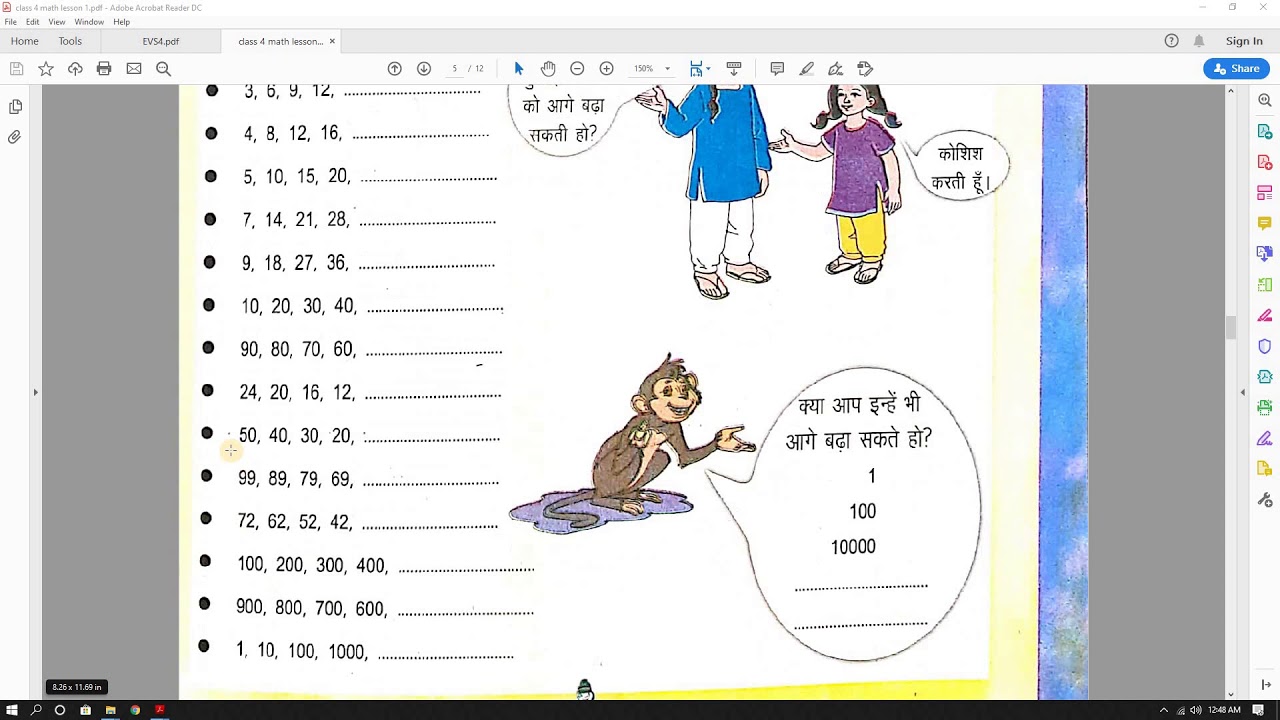 class 4 math lesson 1.pdf - Adobe Acrobat Reader DC
File Edit View Window Help
Home Tools EVS4.pdf class 4 math lesson... × Sign In
5 / 12 150% Share
3, 6, 9, 12, ....................
4, 8, 12, 16, ....................
5, 10, 15, 20, ....................
7, 14, 21, 28, ....................
9, 18, 27, 36, ....................
10, 20, 30, 40, ....................
90, 80, 70, 60, ....................
24, 20, 16, 12, ....................
50, 40, 30, 20, ....................
99, 89, 79, 69, ....................
72, 62, 52, 42, ....................
100, 200, 300, 400, ....................
900, 800, 700, 600, ....................
1, 10, 100, 1000, ....................
को आगे बढ़ा
सकती हो?
कोशिश
करती हूँ।
क्या आप इन्हें भी
आगे बढ़ा सकते हो?
1
100
10000
....................
....................
8.26 x 11.69 in
12:48 AM